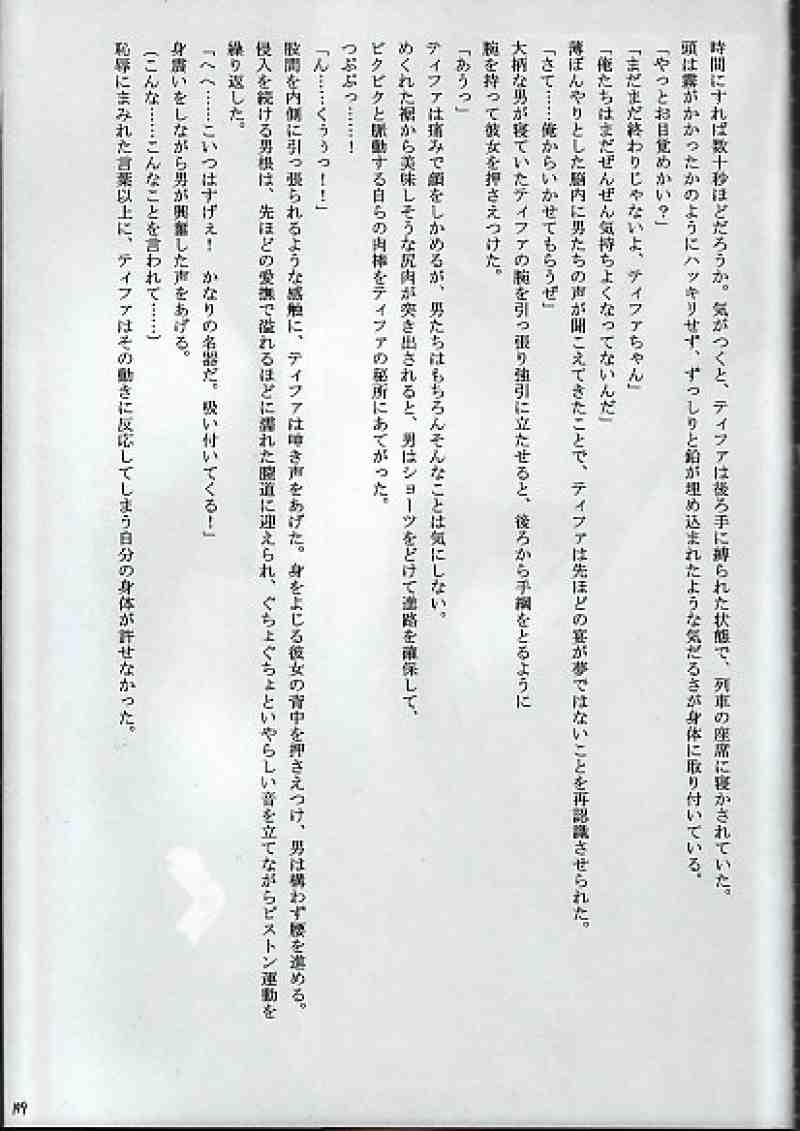 時間にすれば数十秒ほどだろうか。気がつくと、ティファは後ろ手に縛られた状態で、列車の座席に寝かされていた。
頭は霧がかかったかのようにハッキリせず、ずっしりと鉛が埋め込まれたような気だるさが身体に取り付いている。
「やっとお目覚めかい？」
「まだまだ終わりじゃないよ、ティファちゃん」
「俺たちはまだぜんぜん気持ちよくなってないんだ」
薄ぼんやりとした脳内に男たちの声が聞こえてきたことで、ティファは先ほどの宴が夢ではないことを再認識させられた。
「さて……俺からいかせてもらうぜ」
大柄な男が寝ていたティファの腕を引っ張り強引に立たせると、後ろから手綱をとるように
腕を持って彼女を押さえつけた。
「あうっ」
ティファは痛みで顔をしかめるが、男たちはもちろんそんなことは気にしない。
めくれた裾から美味しそうな尻肉が突き出されると、男はショーツをどけて進路を確保して、
ビクビクと脈動する自らの肉棒をティファの秘所にあてがった。
つぷぷっ……！
「ん……くぅぅっ！！」
股間を内側に引っ張られるような感触に、ティファは呻き声をあげた。身をよじる彼女の背中を押さえつけ、男は構わず腰を進める。
侵入を続ける男根は、先ほどの愛撫で溢れるほどに濡れた膣道に迎えられ、ぐちょぐちょといやらしい音を立てながらピストン運動を
繰り返した。
「へへ……こいつはすげぇ！　かなりの名器だ。吸い付いてくる！」
身震いをしながら男が興奮した声をあげる。
（こんな……こんなことを言われて……）
恥辱にまみれた言葉以上に、ティファはその動きに反応してしまう自分の身体が許せなかった。